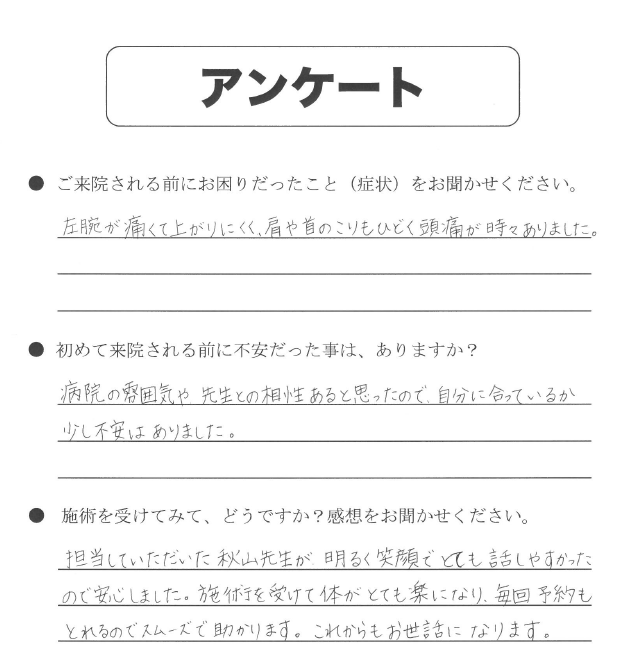 アンケート
● ご来院される前にお困りだったこと（症状）をお聞かせください。
左腕が痛くて上がりにくく、肩や首のこりもひどく頭痛が時々ありました。
● 初めて来院される前に不安だった事は、ありますか？
病院の雰囲気や 先生との相性あると思ったので、自分に合っているか
少し不安は ありました。
● 施術を受けてみて、どうですか？感想をお聞かせください。
担当していただいた 秋山先生が 明るく笑顔で とても 話しやすかった
ので安心しました。施術を受けて体が とても 楽になり、毎回 予約も
とれるのでスムーズで助かります。これからもお世話に なります。